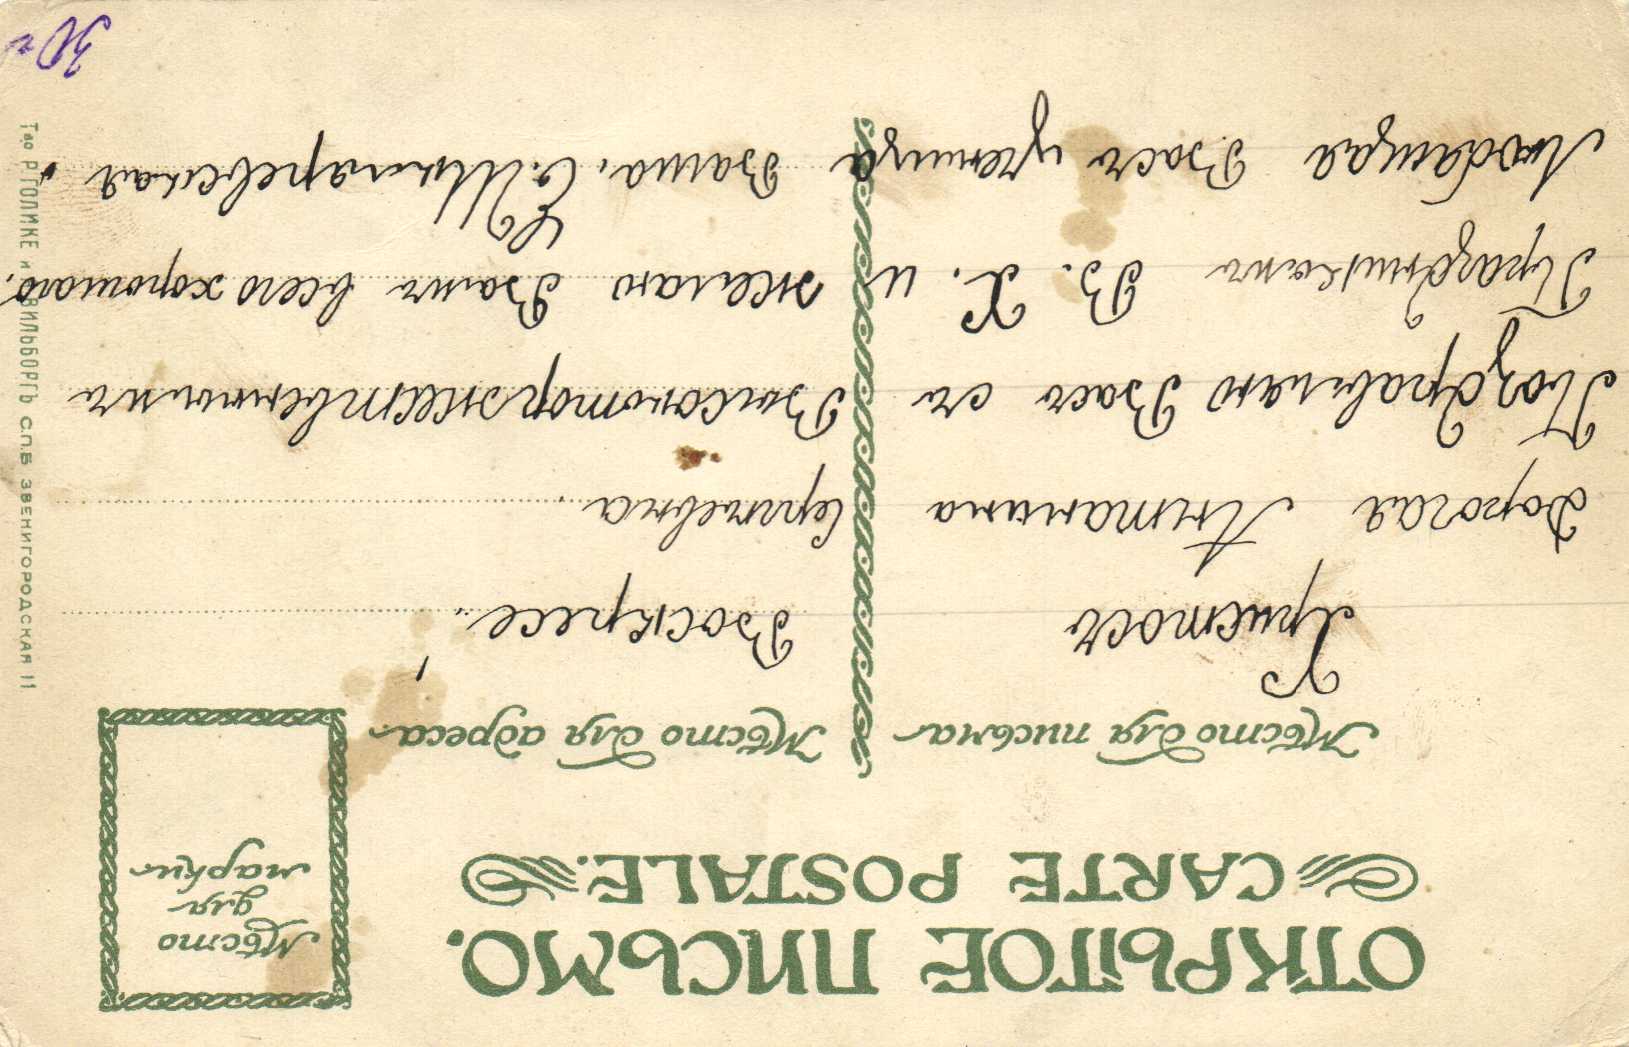 ОТКРЫТОЕ ПИСЬМО.
CARTE POSTALE.
Мѣсто
для
марки
Мѣсто для письма
Мѣсто для адреса
Христосъ Воскресе!
Дорогая Антанина Сергѣевна.
Поздравляю Васъ съ Высокоторжественнымъ
Праздникомъ В. Х. и желаю Вамъ всего хорошаго.
Любящая Васъ ученица Ваша, С.
Т-во Р. ГОЛИКЕ и А. ВИЛЬБОРГЪ СПБ ЗВЕНИГОРОДСКАЯ 11